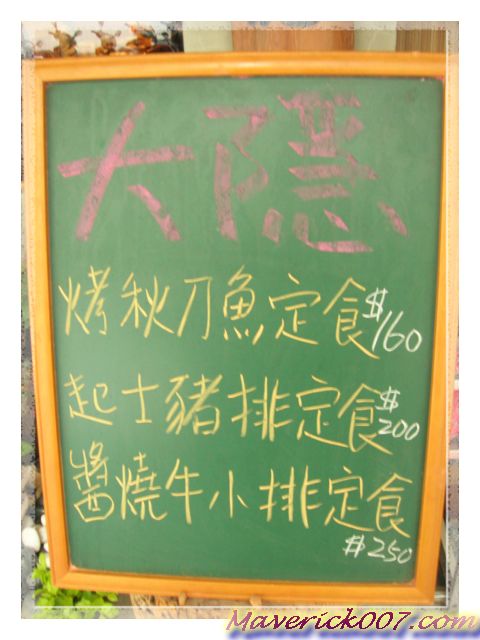 大隱
烤秋刀魚定食$160
起士豬排定食$200
醬燒牛小排定食
$250
Maverick007.com